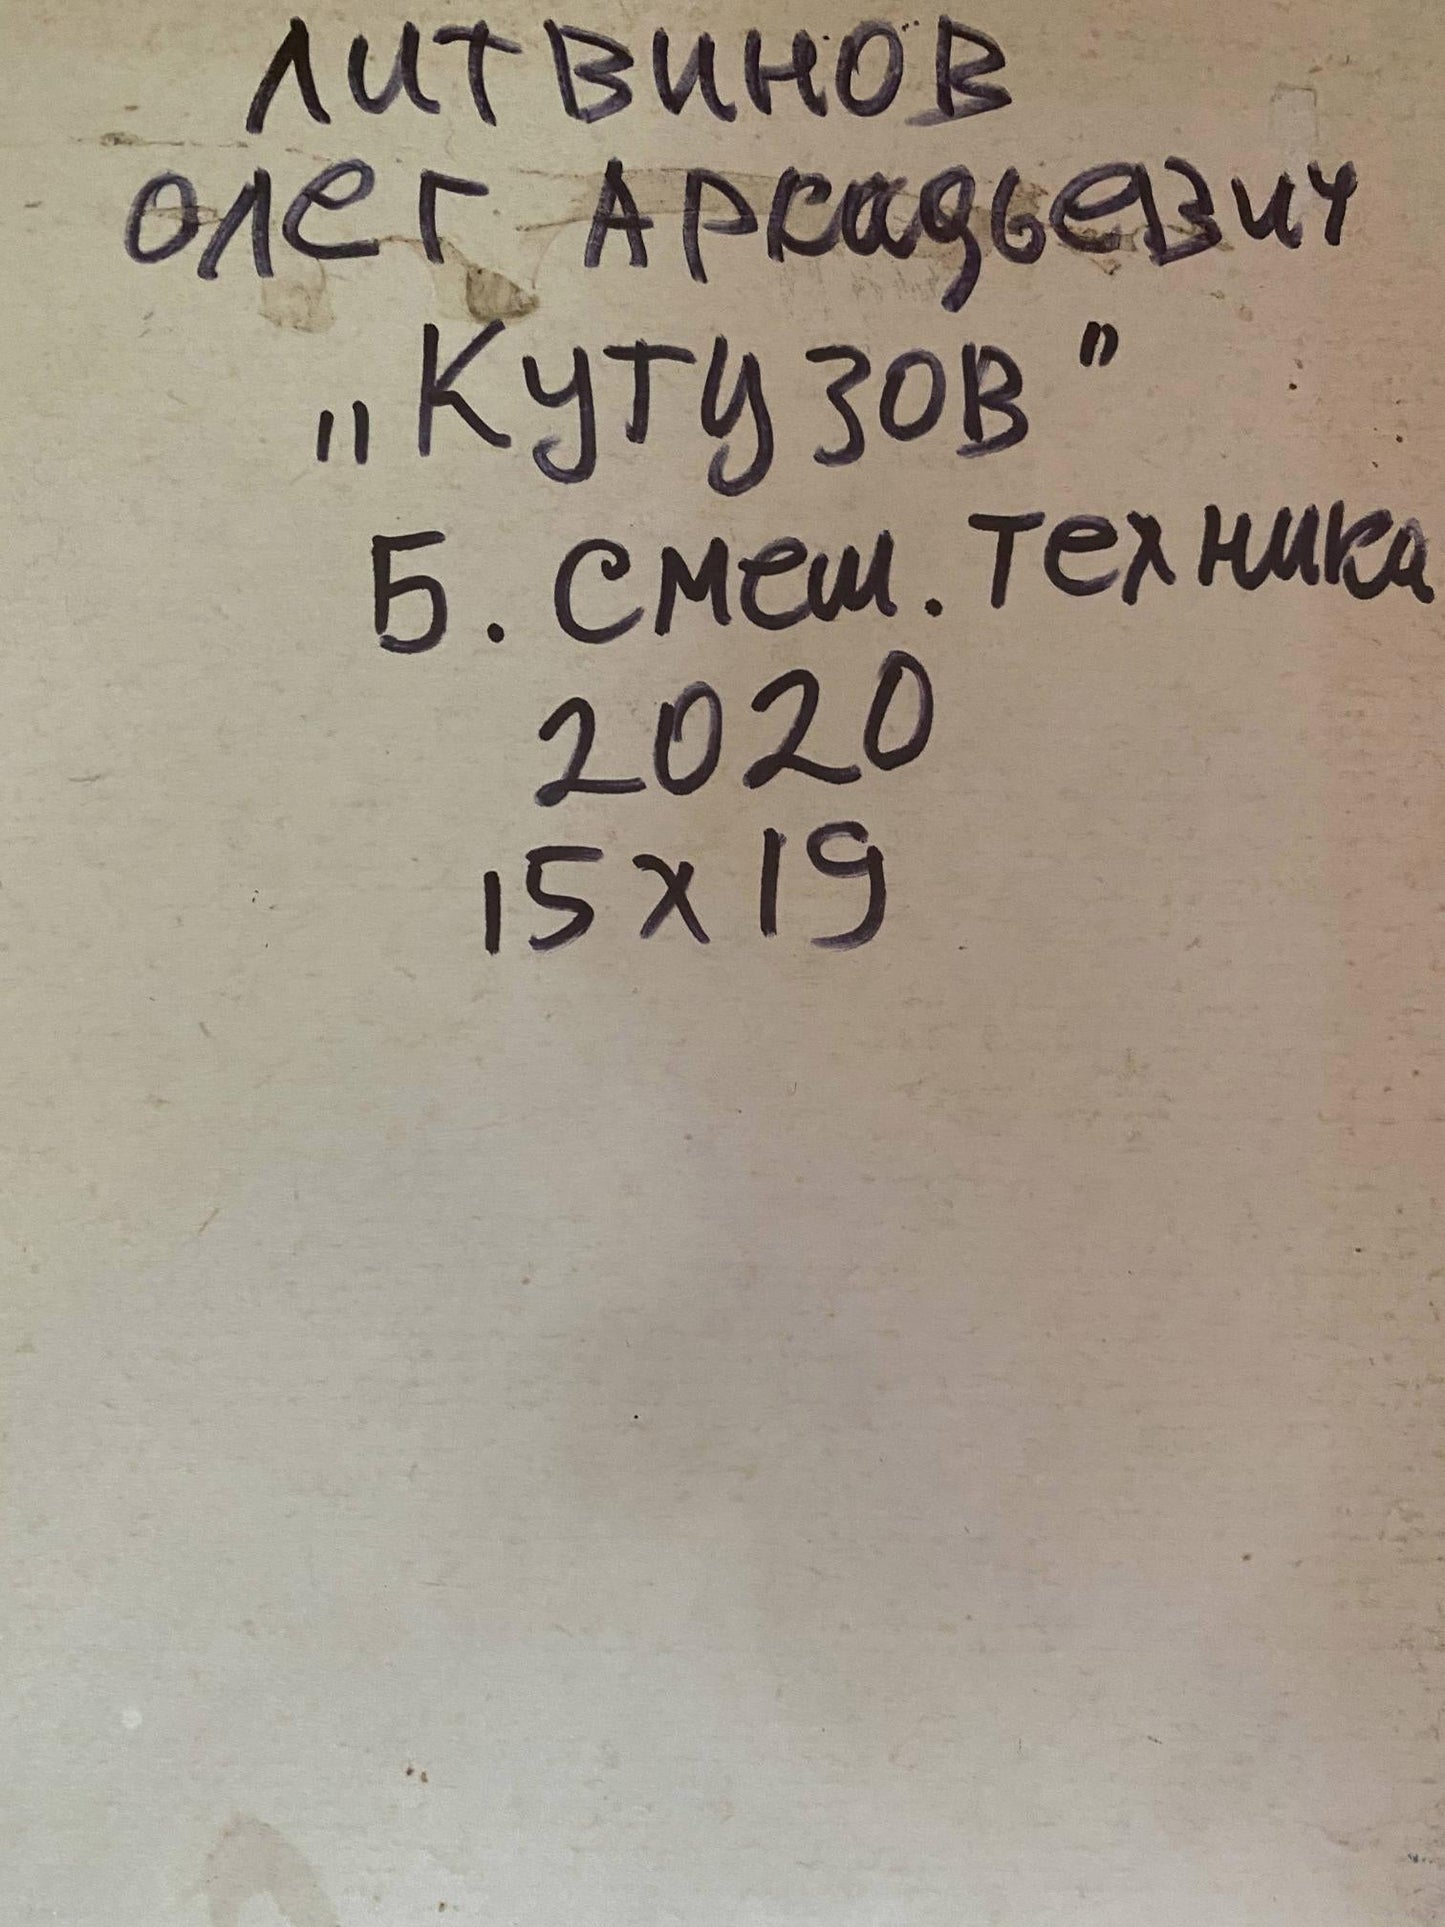 Литвинов
Олег Аркадьевич
„Кутузов”
Б. смеш. техника
2020
15х19